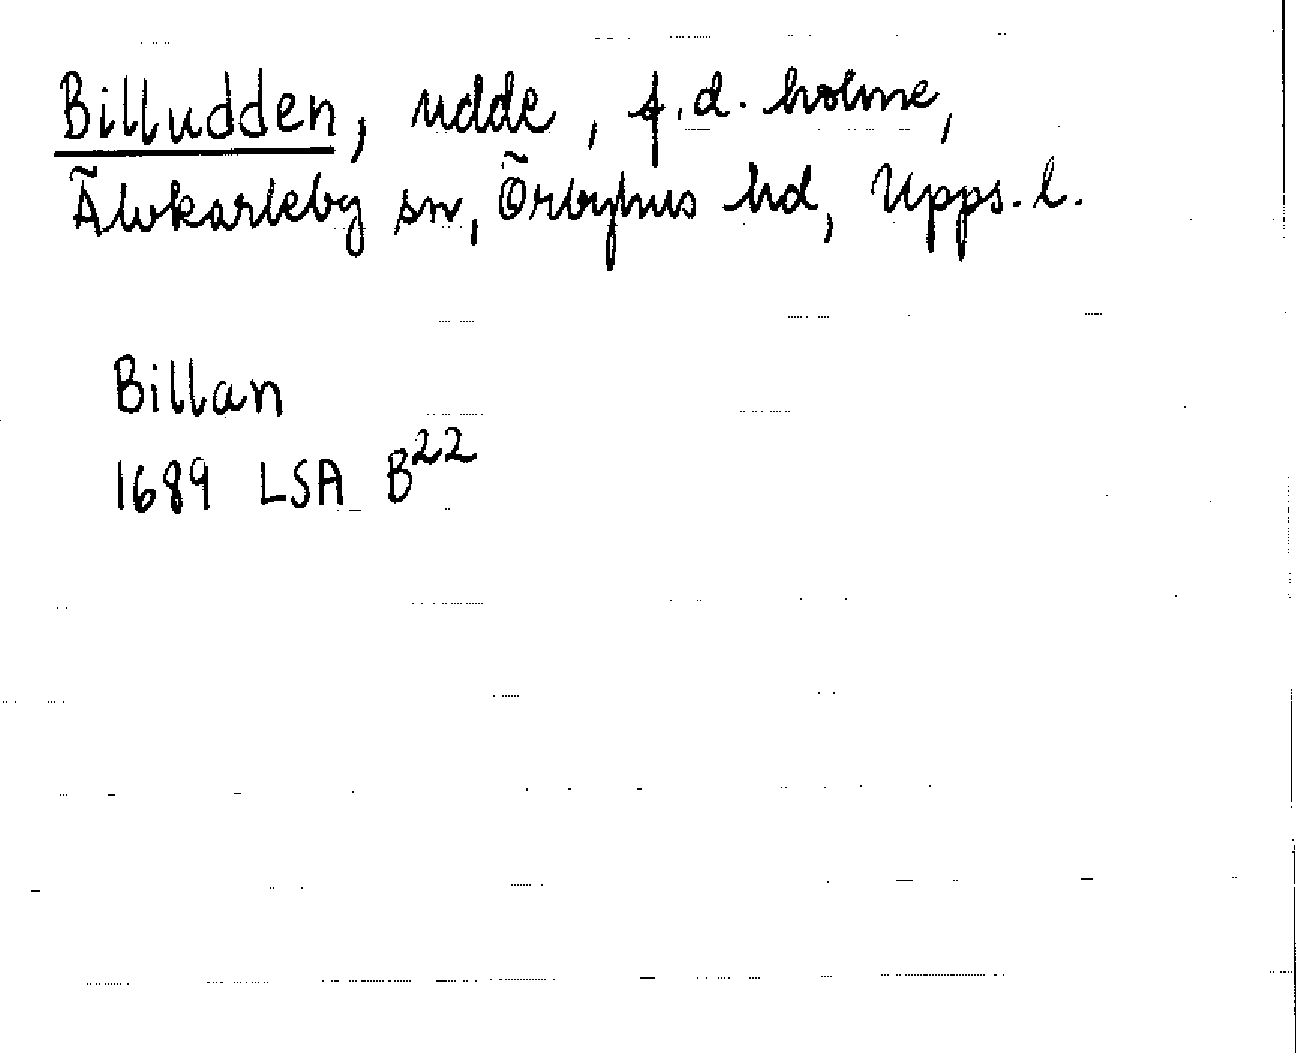 Billudden, udde, f.d. holme,
Älvkarleby sn, Örbyhus hd, Upps. l.
Billan
1689 LSA B²²